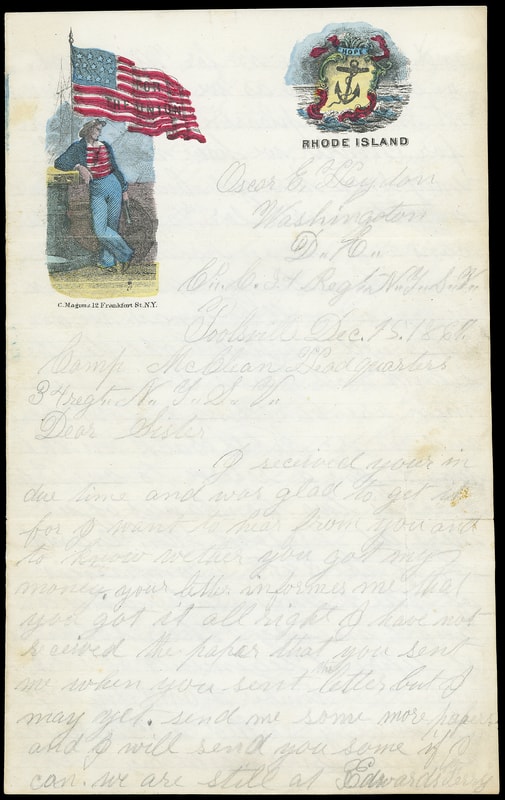 FOR
THE UNION
HOPE
RHODE ISLAND
C. Magnus, 12 Frankfort St. N.Y.
Oscar E. Haydon
Washington
D. C.
Co. C. 34 Regt N. Y. S. V.
Dec. 15. 1861.
Camp McClean Headquarters
34 regt. N. Y. S. V.
Dear Sister
I received your in
due time and was glad to get it
for I want to hear from you and
to know wether you got my
money. your letter informes me that
you got it all right I have not
received the paper that you sent
me when you sent the letter but I
may yet. send me some more papers
and I will send you some if I
can. we are still at Edwards Ferry